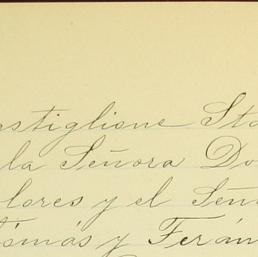 astiglione Sta
la Señora Do
lores y el Señ
Tomás y Ferán